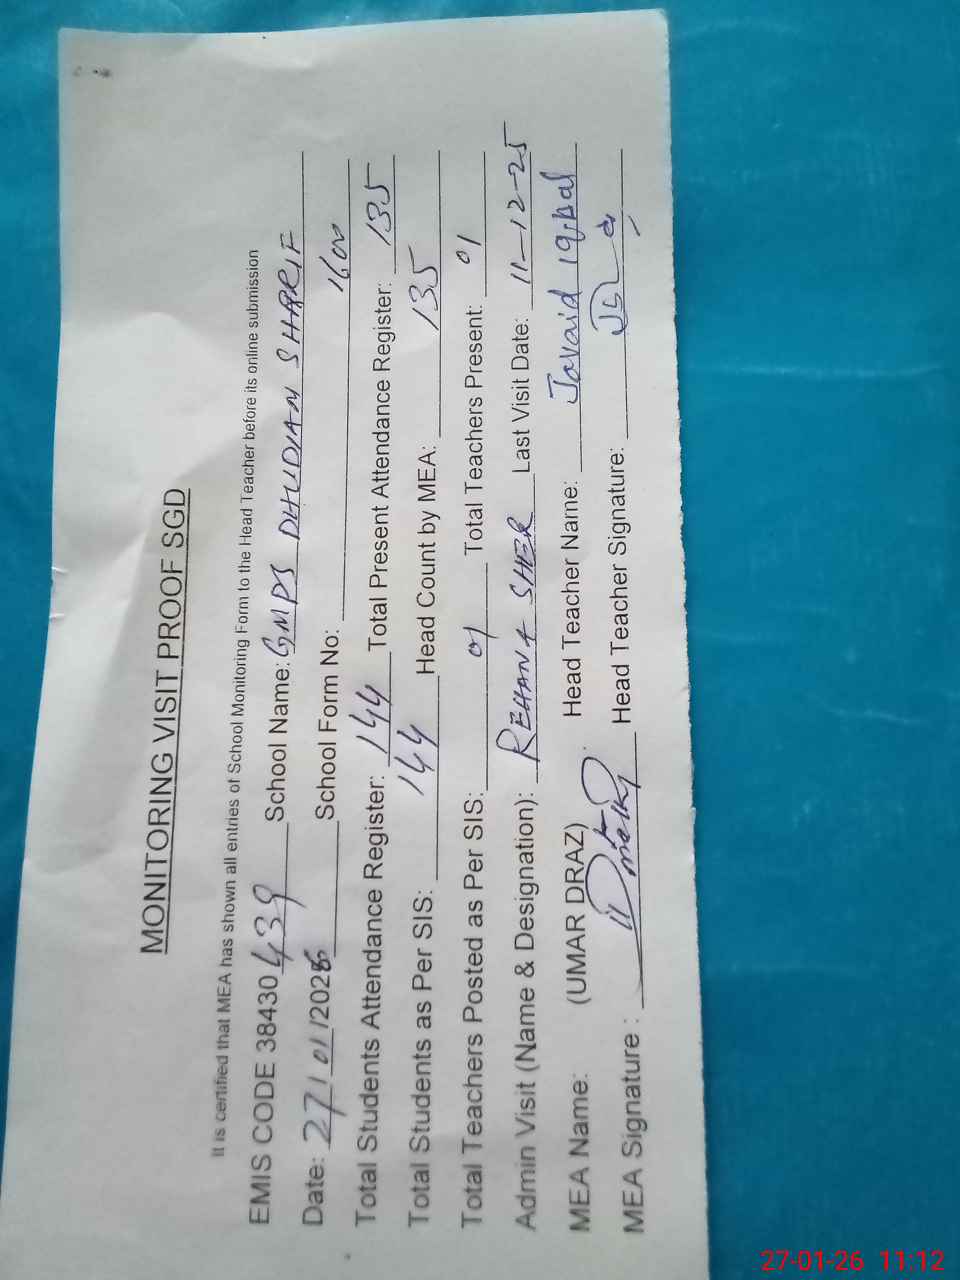 MONITORING VISIT PROOF SGD
It is certified that MEA has shown all entries of School Monitoring Form to the Head Teacher before its online submission
EMIS CODE 38430439 School Name: GMPS DHUDIAN SHARIF
Date: 27/01/2026 School Form No: 1600
Total Students Attendance Register: 144 Total Present Attendance Register: 135
Total Students as Per SIS: 144 Head Count by MEA: 135
Total Teachers Posted as Per SIS: 01 Total Teachers Present: 01
Admin Visit (Name & Designation): REHANA SHER Last Visit Date: 11-12-25
MEA Name: (UMAR DRAZ) Head Teacher Name: Javaid Iqbal
MEA Signature : Head Teacher Signature:
27-01-26 11:12